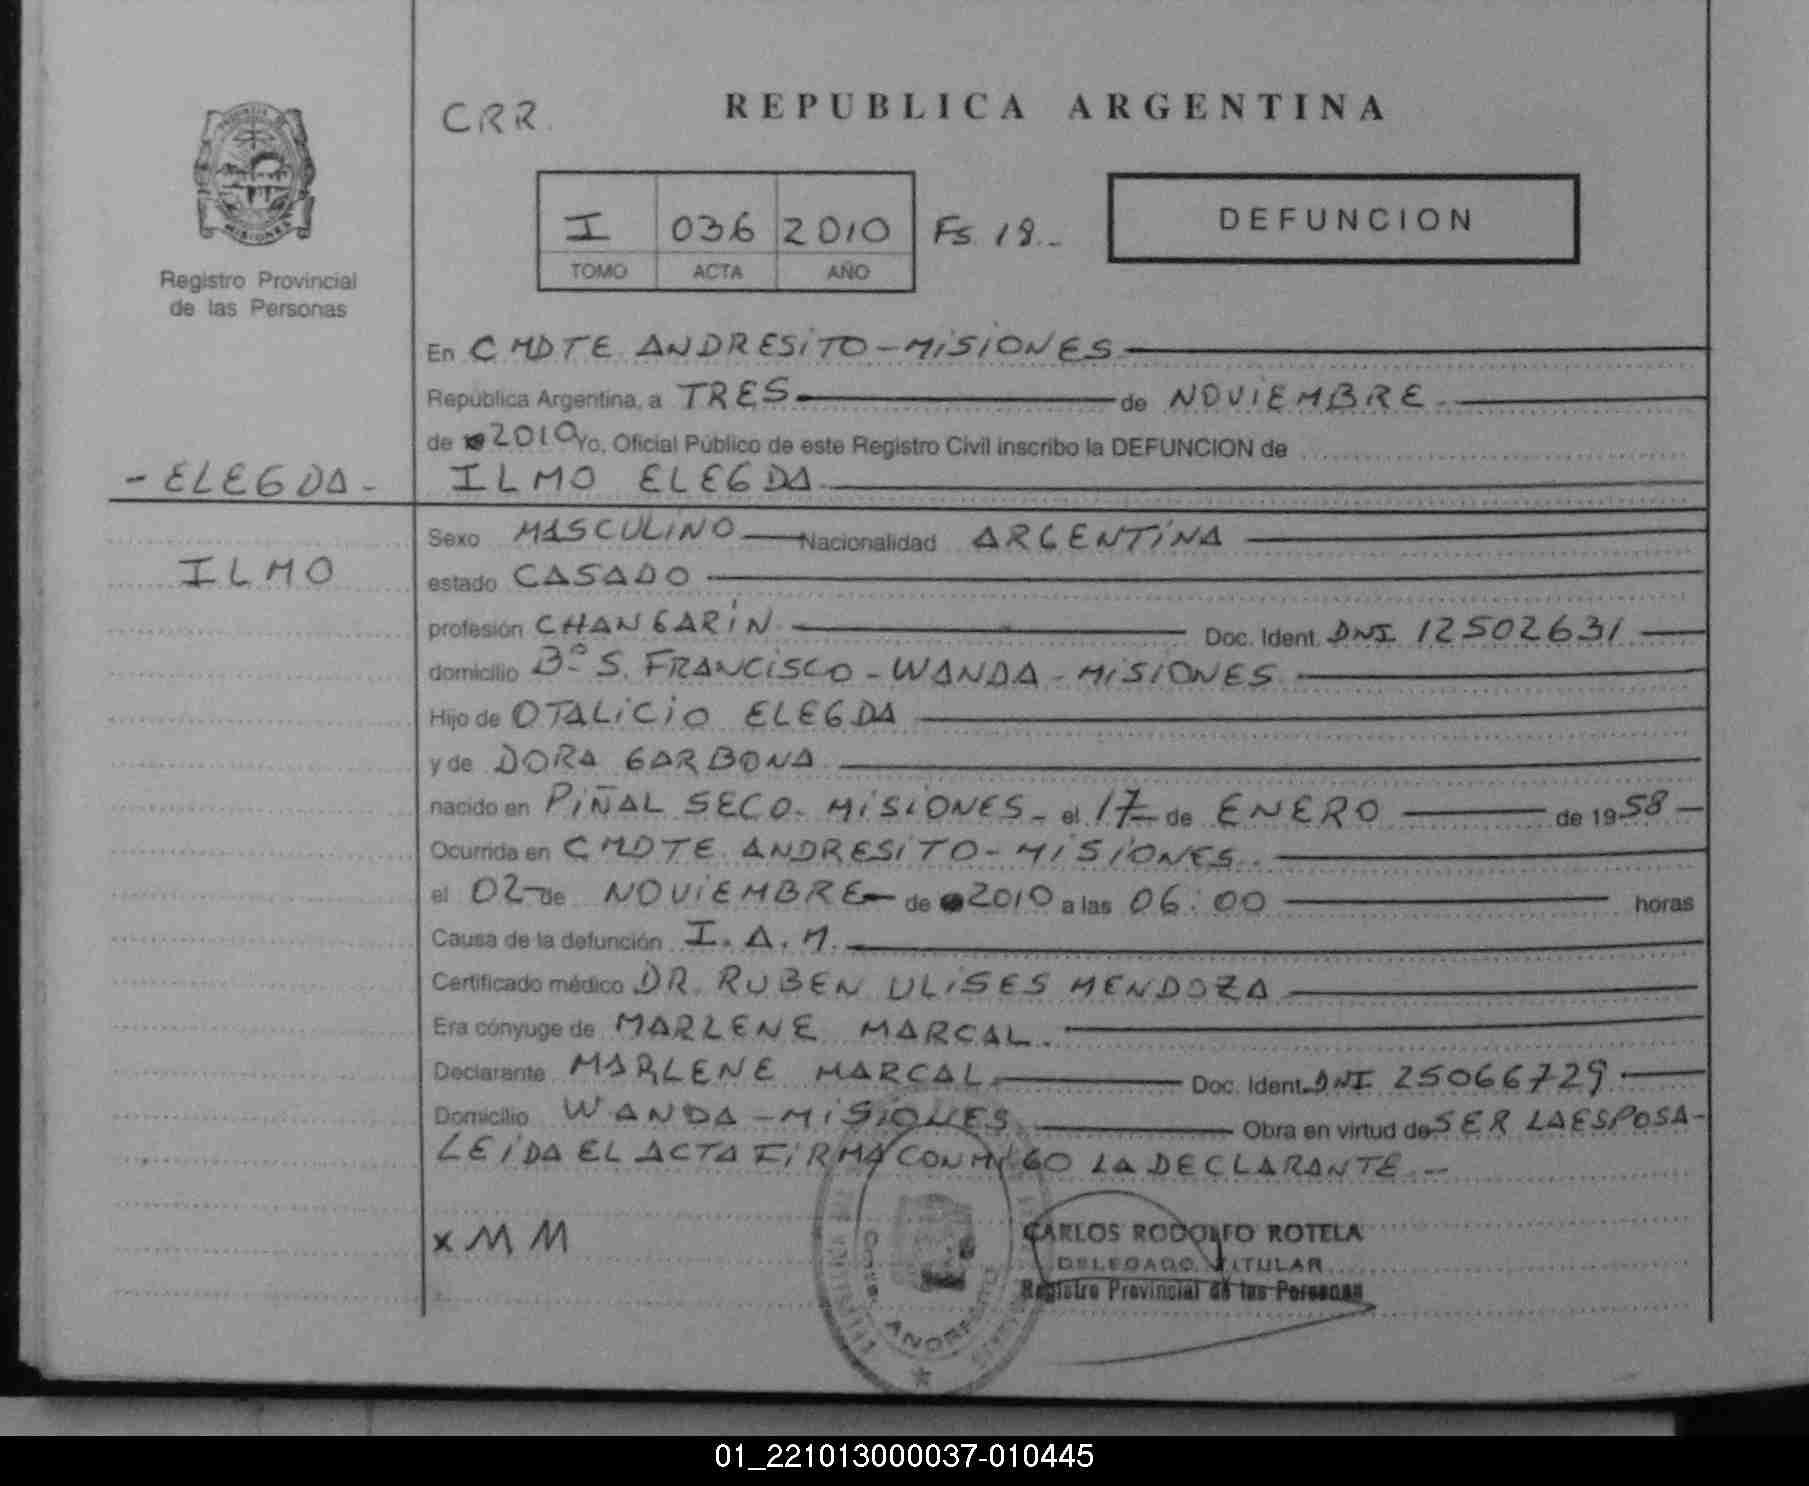 CRR.
REPUBLICA ARGENTINA
MISIONES
Registro Provincial
de las Personas
I 036 2010 Fs 18.-
TOMO ACTA AÑO
DEFUNCION
En CMDTE ANDRESITO - MISIONES
República Argentina, a TRES de NOVIEMBRE
de 2010 Yo, Oficial Público de este Registro Civil inscribo la DEFUNCION de
- ELEGDA - ILMO ELEGDA
Sexo MASCULINO Nacionalidad ARGENTINA
ILMO
estado CASADO
profesión CHANGARIN Doc. Ident. DNI 12502631
domicilio Bº S. FRANCISCO - WANDA - MISIONES
Hijo de OTALICIO ELEGDA
y de DORA GARBONA
nacido en PIÑAL SECO - MISIONES - el 17 de ENERO de 1958
Ocurrida en CMDTE ANDRESITO - MISIONES
el 02 de NOVIEMBRE de 2010 a las 06:00 horas
Causa de la defunción I.A.M.
Certificado médico DR. RUBEN ULISES MENDOZA
Era cónyuge de MARLENE MARCAL.
Declarante MARLENE MARCAL Doc. Ident. DNI 25066729
Domicilio WANDA - MISIONES Obra en virtud de SER LA ESPOSA -
LEIDA EL ACTA FIRMA CONMIGO LA DECLARANTE. -
x MM
CARLOS RODOLFO ROTELA
DELEGADO TITULAR
Registro Provincial de las Personas
01_221013000037-010445